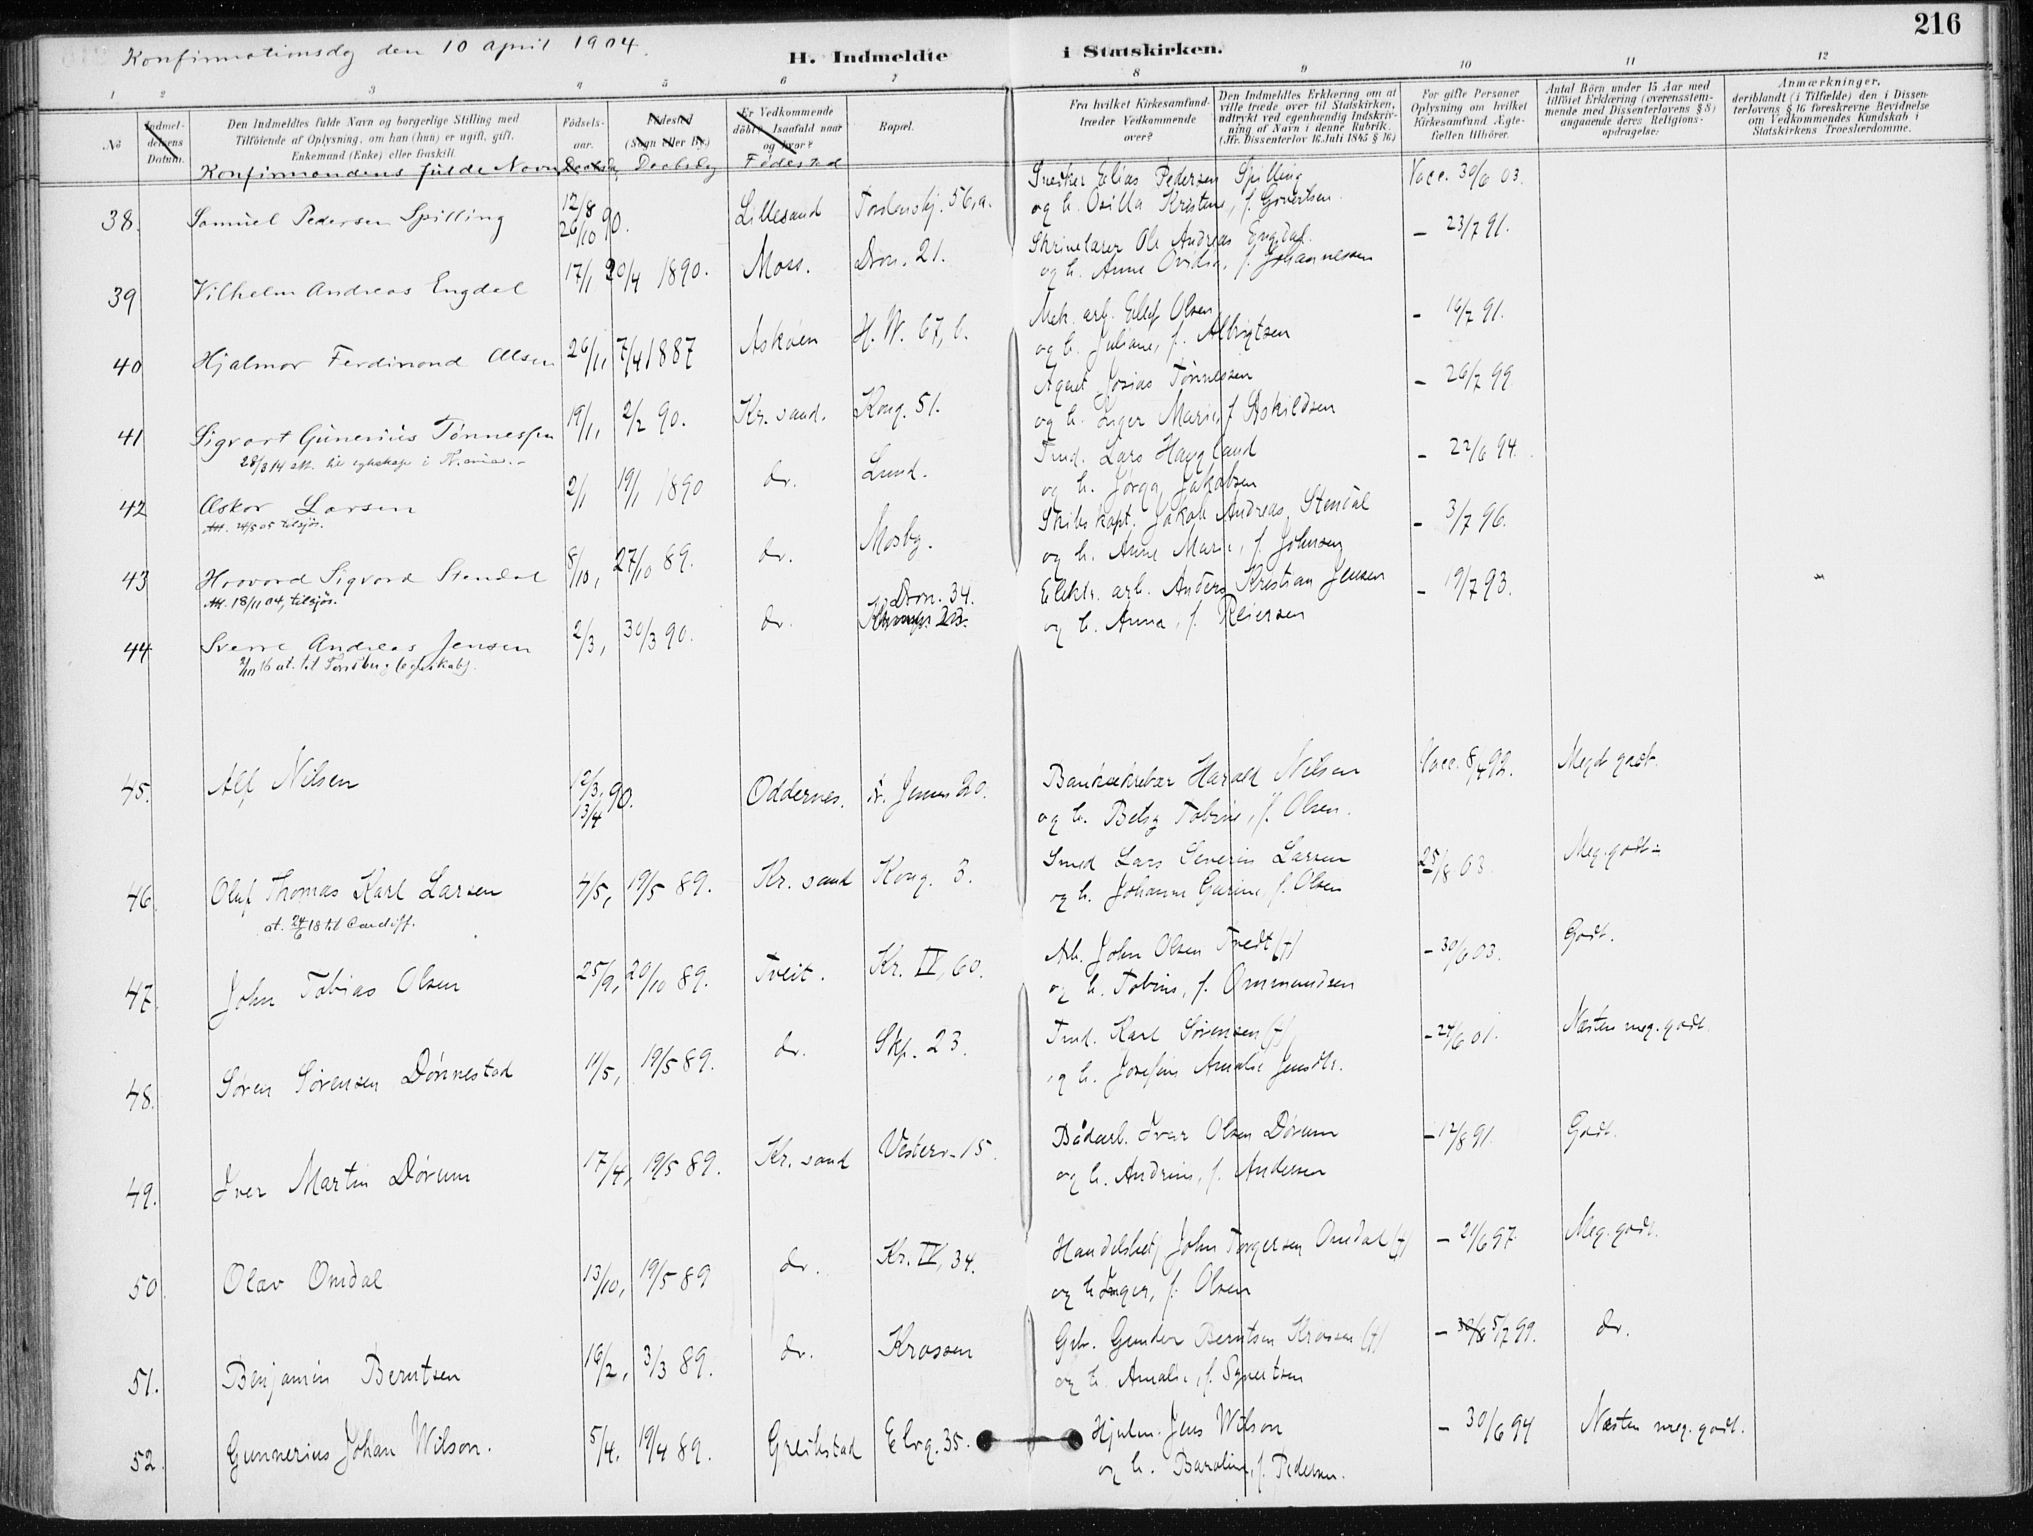 Konfirmationsdag den 10 april 1904.
H. Indmeldte i Statskirken.
216
1 2 3 4 5 6 7 8 9 10 11 12
No
Indmeldelsens Datum.
Den Indmeldtes fulde Navn og borgerlige Stilling med
Tilföiende af Oplysning, om han (hun) er ugift, gift,
Enkemand (Enke) eller fraskilt.
Födselsaar.
Födested
(Sogn eller By)
Er Vedkommende
döbt, i saafald naar
og hvor?
Bopæl.
Fra hvilket Kirkesamfund
træder Vedkommende
over?
Den Indmeldtes Erklæring om at
ville træde over til Statskirken,
udtrykt ved egenhændig Indskrivning
af Navn i denne Rubrik.
(Jfr. Dissenterlov 16 Juli 1845 § 16)
For gifte Personer
Oplysning om hvilket
Kirkesamfund Ægtefællen
tilhörer.
Antal Börn under 15 Aar med
tilföiet Erklæring (overensstemmende
med Dissenterlovens § 8)
angaaende deres Religionsopdragelse:
Anmærkninger,
deriblandt (i Tilfælde) den i Dissenterlovens
§ 16 foreskrevne Bevidnelse
om Vedkommendes Kundskab i
Statskirkens Troeslærdomme.
Konfirmandens fulde Navn Daabsdag Fødested
38. Samuel Pedersen Spilling 12/8 26/10 90. Lillesand Tordenskj. 56,a. Snedker Elias Pedersen Spilling Vacc. 30/6 03.
og h. Osilla Kristine, f. Govertsen
39 Vilhelm Andreas Engdal 17/1 20/4 1890. Moss. Dron. 21. Skrivelærer Ole Andreas Engdal. - 23/7 91.
og h. Anne Ovidia, f. Johannessen
40 Hjalmar Ferdinand Olsen 26/11, 7/4 1887 Askøen H. W. 67, b. Mek. arb. Ellef Olsen - 16/7 91.
og h. Juliane, f. Albrigtsen
41 Sigvart Gunerius Tønnessen 19/11, 2/2 90. Kr. sand. Kong. 51. Agent Josias Tønnessen - 26/7 99.
og h. Inger Marie, f. Askildsen
28/3 14 att. til egteskap i N.
42 Oskar Larsen 2/1 19/1 1890 do. Lund. Tmd. Lars Haugland - 22/6 94.
og h. Jørga Jakobsen
Att. 24/5 05 tilsjøs.
43 Haavard Sigvard Stendal 8/10, 27/10 89. do. Mosby. Skibskapt. Jakob Andreas Stendal - 3/7 96.
og h. Anne Marie, f. Johnsen
Att. 18/11 04, tilsjøs.
44 Sverre Andreas Jensen 2/3, 30/3 90. do. Dron. 34. Elektr. arb. Anders Kristian Jensen - 19/7 93.
og h. Anna, f. Reiersen
16 at. til Tønsberg (egteskab).
45. Alf Nilsen 12/3, 13/4 90. Oddernes. Jensen 20. Banksekretær Harald Nilsen Vacc. 8/4 92. Meget godt.
og h. Betsy Tobine, f. Olsen.
46. Olaf Thomas Karl Larsen 4/5, 19/5 89. Kr. sand Kong. 3. Smed Lars Severin Larsen 25/8 03. Meg. godt-
og h. Johanne Gurine, f. Olsen
at. 24/6 18 til Cardiff.
47. John Tobias Olsen 25/9, 20/10 89. Tveit. Kr. IV, 60. Arb. John Olsen Tvedt (+) - 30/6 03. Godt.
og h. Tobine, f. Ommundsen
48. Søren Sørensen Dønnestad 11/5, 19/5 89. do. Skp. 23. Tmd. Karl Sørensen (+), - 24/6 01. Næsten meg. godt.
og h. Josefine Amalie Jensdtr.
49. Iver Martin Dørum 17/4, 19/5 89. Kr. sand Vesterv. 15. Bådarb. Ivar Olsen Dørum - 12/8 91. Godt.
og h. Andrine, f. Andersen
50. Olav Omdal 13/10, 19/5 89 do. Kr. IV, 34. Handelsbetj John Torgersen Omdal (+) - 21/6 97. Meg. godt.
og h Inger, f. Olsen
51. Benjamin Berntsen 16/2, 3/3 89. do. Krossen Gbr. Gunder Berntsen Krossen (+) - 30/6 5/7 99. do.
og h. Amalie, f. Syvertsen
52. Gunnerius Johan Wilson. 5/4. 19/4 89. Greibstad Elvg. 35. Hjulm. Jens Wilson - 30/6 94 Næsten meg. godt.
og h. Baroline, f. Pedersen.